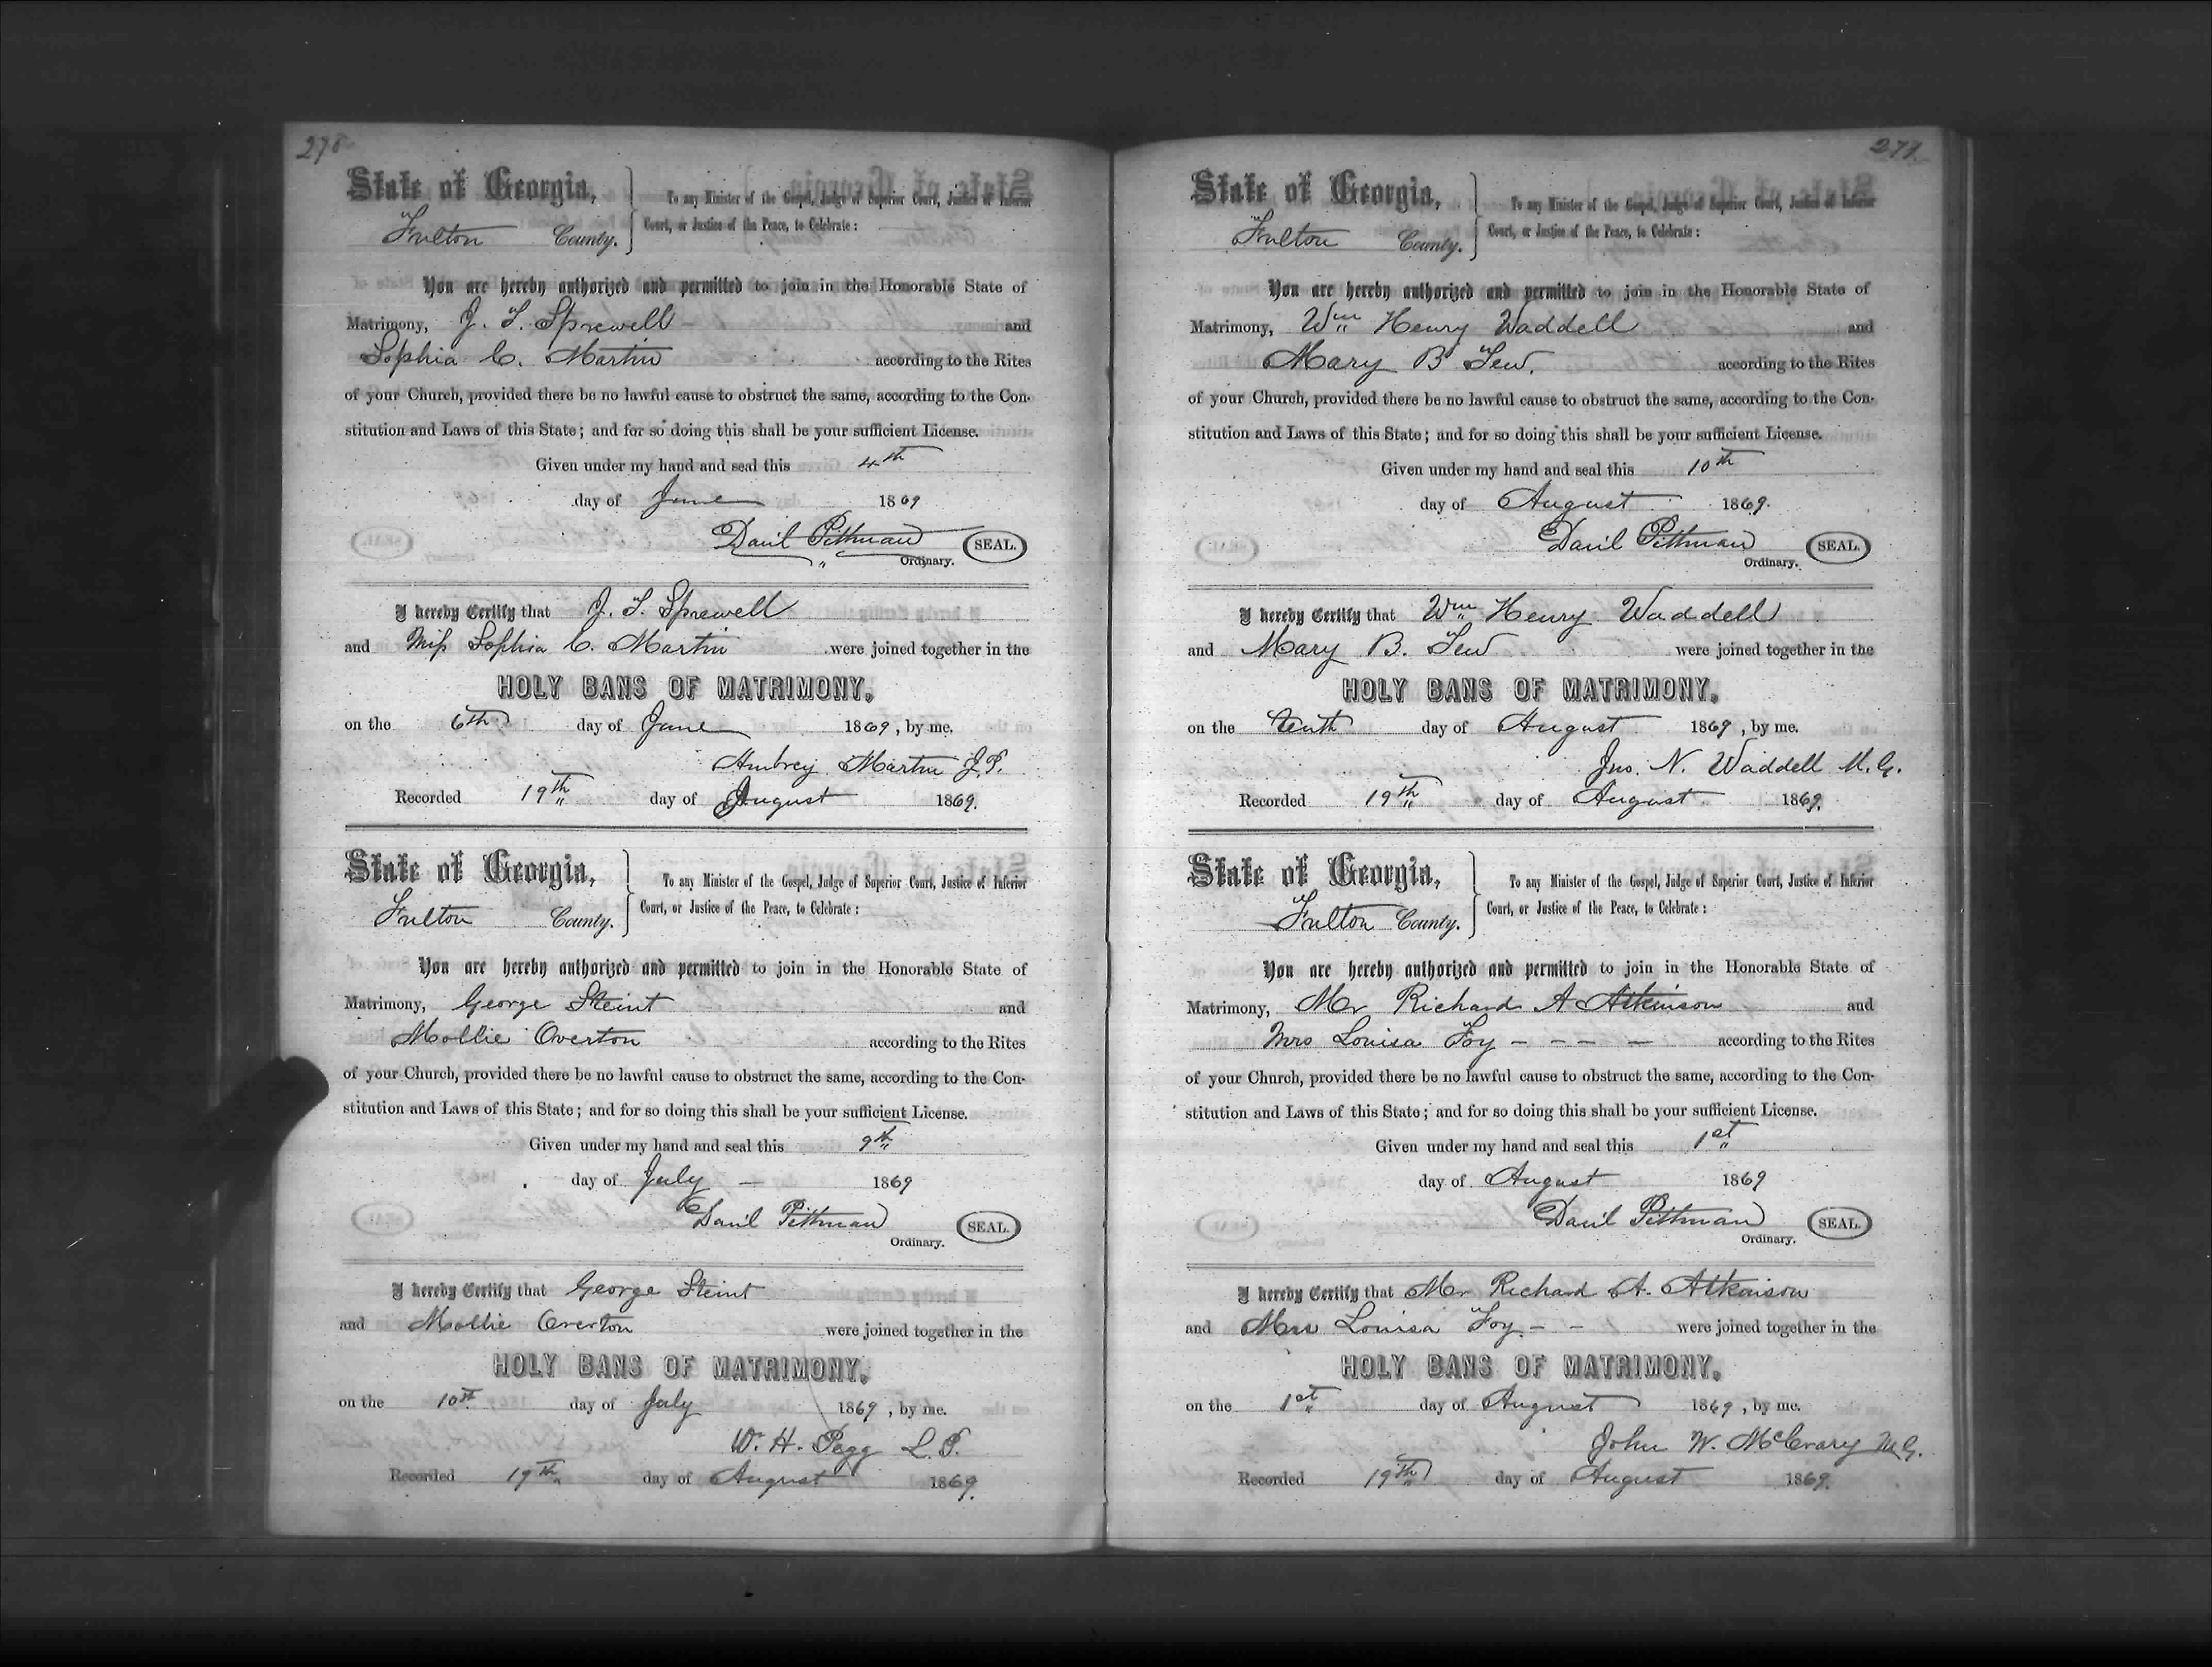 278
State of Georgia,
Fulton County.
To any Minister of the Gospel, Judge of Superior Court, Justice of Inferior
Court, or Justice of the Peace, to Celebrate:
You are hereby authorized and permitted to join in the Honorable State of
Matrimony, J. T. Sprewell and
Sophia C. Martin according to the Rites
of your Church, provided there be no lawful cause to obstruct the same, according to the Con-
stitution and Laws of this State; and for so doing this shall be your sufficient License.
Given under my hand and seal this 4th
day of June 1869
Danil Pittman SEAL.
Ordinary.
I hereby Certify that J. T. Sprewell
and Miss Sophia C. Martin were joined together in the
HOLY BANS OF MATRIMONY,
on the 6th day of June 1869, by me.
Aubrey Martin J.P.
Recorded 19th day of August 1869.
State of Georgia,
Fulton County.
To any Minister of the Gospel, Judge of Superior Court, Justice of Inferior
Court, or Justice of the Peace, to Celebrate:
You are hereby authorized and permitted to join in the Honorable State of
Matrimony, George Steint and
Mollie Overton according to the Rites
of your Church, provided there be no lawful cause to obstruct the same, according to the Con-
stitution and Laws of this State; and for so doing this shall be your sufficient License.
Given under my hand and seal this 9th
day of July — 1869
Danil Pittman SEAL.
Ordinary.
I hereby Certify that George Steint
and Mollie Overton were joined together in the
HOLY BANS OF MATRIMONY,
on the 10th day of July 1869, by me.
W. H. Pegg L.P.
Recorded 19th day of August 1869.
279.
State of Georgia,
Fulton County.
To any Minister of the Gospel, Judge of Superior Court, Justice of Inferior
Court, or Justice of the Peace, to Celebrate:
You are hereby authorized and permitted to join in the Honorable State of
Matrimony, Wm Henry Waddell and
Mary B Tew. according to the Rites
of your Church, provided there be no lawful cause to obstruct the same, according to the Con-
stitution and Laws of this State; and for so doing this shall be your sufficient License.
Given under my hand and seal this 10th
day of August 1869.
Danil Pittman SEAL.
Ordinary.
I hereby Certify that Wm Henry Waddell
and Mary B. Tew were joined together in the
HOLY BANS OF MATRIMONY,
on the tenth day of August 1869, by me.
Jno. N. Waddell M.G.
Recorded 19th day of August 1869.
State of Georgia,
Fulton County.
To any Minister of the Gospel, Judge of Superior Court, Justice of Inferior
Court, or Justice of the Peace, to Celebrate:
You are hereby authorized and permitted to join in the Honorable State of
Matrimony, Mr Richard A Atkinson and
Mrs Louisa Foy - - - - according to the Rites
of your Church, provided there be no lawful cause to obstruct the same, according to the Con-
stitution and Laws of this State; and for so doing this shall be your sufficient License.
Given under my hand and seal this 1st
day of August 1869
Danil Pittman SEAL.
Ordinary.
I hereby Certify that Mr Richard A. Atkinson
and Mrs Louisa Foy - - were joined together in the
HOLY BANS OF MATRIMONY,
on the 1st day of August 1869, by me.
John W. McCrary M.G.
Recorded 19th day of August 1869.